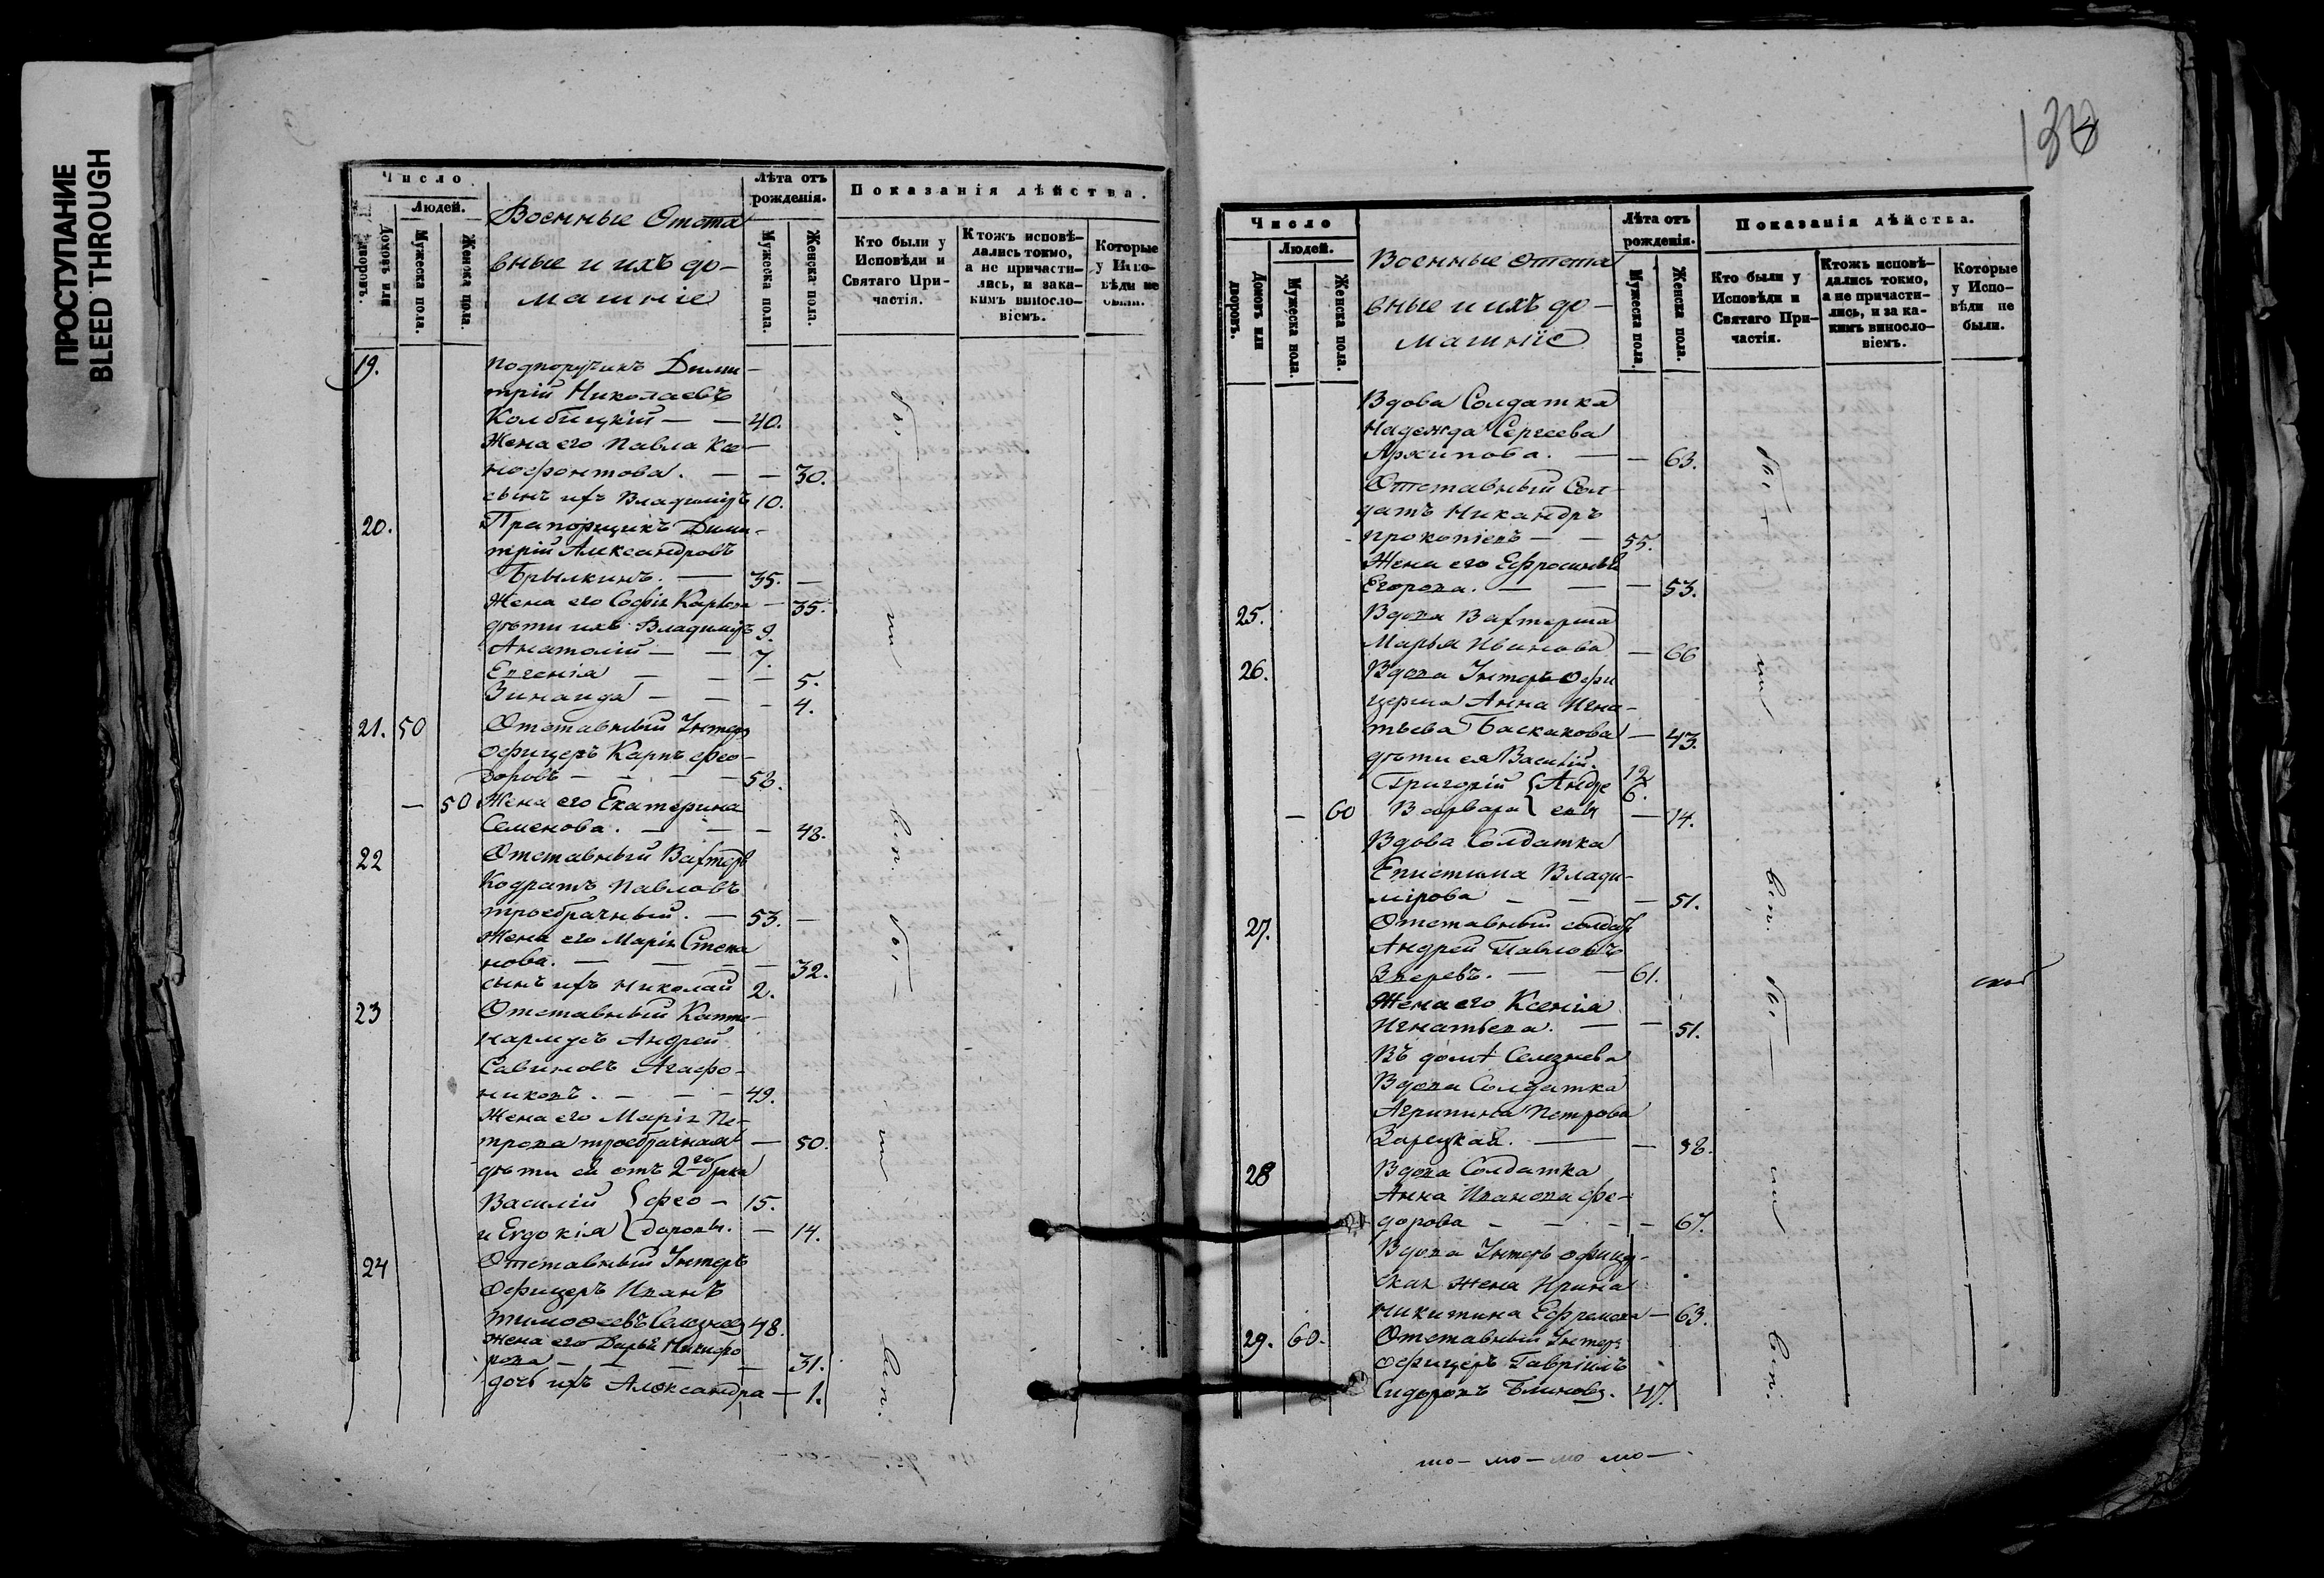 ПРОСТУПАНИЕ
BLEED THROUGH
Число
Людей.
Домовъ или дворовъ.
Мужеска пола.
Женска пола.
Военные Отста
вные и ихъ до-
машніе
Лѣта отъ рожденія.
Мужеска пола.
Женска пола.
Показанія дѣйства.
Кто были у Исповѣди и Святаго При-частія.
Ктожъ исповѣ-дались токмо, а не причасти-лись, и зака-кимъ виносло-віемъ.
Которые у Испо-вѣди не были.
19. Подпоручикъ Дими-
трій Николаевъ
Колбицкій — — 40.
Жена его Павла Ке-
нофонтова. — — 30.
сынъ ихъ Владиміръ 10.
20. Прапорщикъ Дими-
трій Александровъ
Брылкинъ. — 35. —
Жена его Софія Карлова — 35.
дѣти ихъ Владиміръ 9.
Анатолій — — 7.
Евгенія — — — 5.
Зинаида — — - 4.
21. 50 Отставный Унтеръ
офицеръ Карпъ Фео-
доровъ — — — — 58.
— 50 Жена его Екатерина
Семенова. — — — 48.
22 Отставный Вахтеръ
Кодратъ Павловъ
троебрачный. — 53. —
Жена его Марія Степа
нова. — — — — 32.
сынъ ихъ Николай 2.
23 Отставный Капте-
нармусъ Андрей
Савиновъ Агафо-
никовъ. — — — 49.
Жена его Марія Пе-
трова троебрачная — 50.
дѣти ея отъ 2го брака
Василій { Фео — 15.
и Евдокія } доровы. — 14.
24 Отставный Унтеръ
Офицеръ Иванъ
Тимофеевъ Селезнев 48.
жена его Дарья Никифо
рова — — — — 31.
дочь ихъ Александра — 1.
Число
Людей.
Домовъ или дворовъ.
Мужеска пола.
Женска пола.
Военные Отста
вные и ихъ до-
машніе
Лѣта отъ рожденія.
Мужеска пола.
Женска пола.
Показанія дѣйства.
Кто были у Исповѣди и Святаго При-частія.
Ктожъ исповѣ-дались токмо, а не причасти-лись, и за ка-кимъ виносло-віемъ.
Которые у Испо-вѣди не были.
Вдова Солдатка
Надежда Сергеева
Архипова. — — 63.
Отставный Сол-
датъ Никандръ
Прокопіевъ — — 55.
Жена его Ефросинья
Егорова. — — — 53.
25. Вдова Вахтерша
Марья Иванова — 66
26. Вдова Унтеръ Офи
церша Анна Игна-
тьева Баскакова — 43.
дѣти ея Василій. 12
Григорій { Андре 6.
— 60 Варвара } евы — 14.
Вдова Солдатка
Епистима Влади-
мірова — — — 51.
27. Отставный солдатъ
Андрей Павловъ
Зверевъ. — — 61.
Жена его Ксенія
Игнатьева. — — 51.
Въ домѣ Селезнева
Вдова Солдатка
Агрипина Петрова
Зарецкая. — — 38.
28 Вдова Солдатка
Анна Иванова Фе-
дорова — — — — 67.
Вдова Унтеръ офицер-
ская жена Ирина
Никитина Ефремова — 63.
29. 60. Отставный Унтеръ
офицеръ Гавріилъ
Сидоровъ Блиновъ. 47.